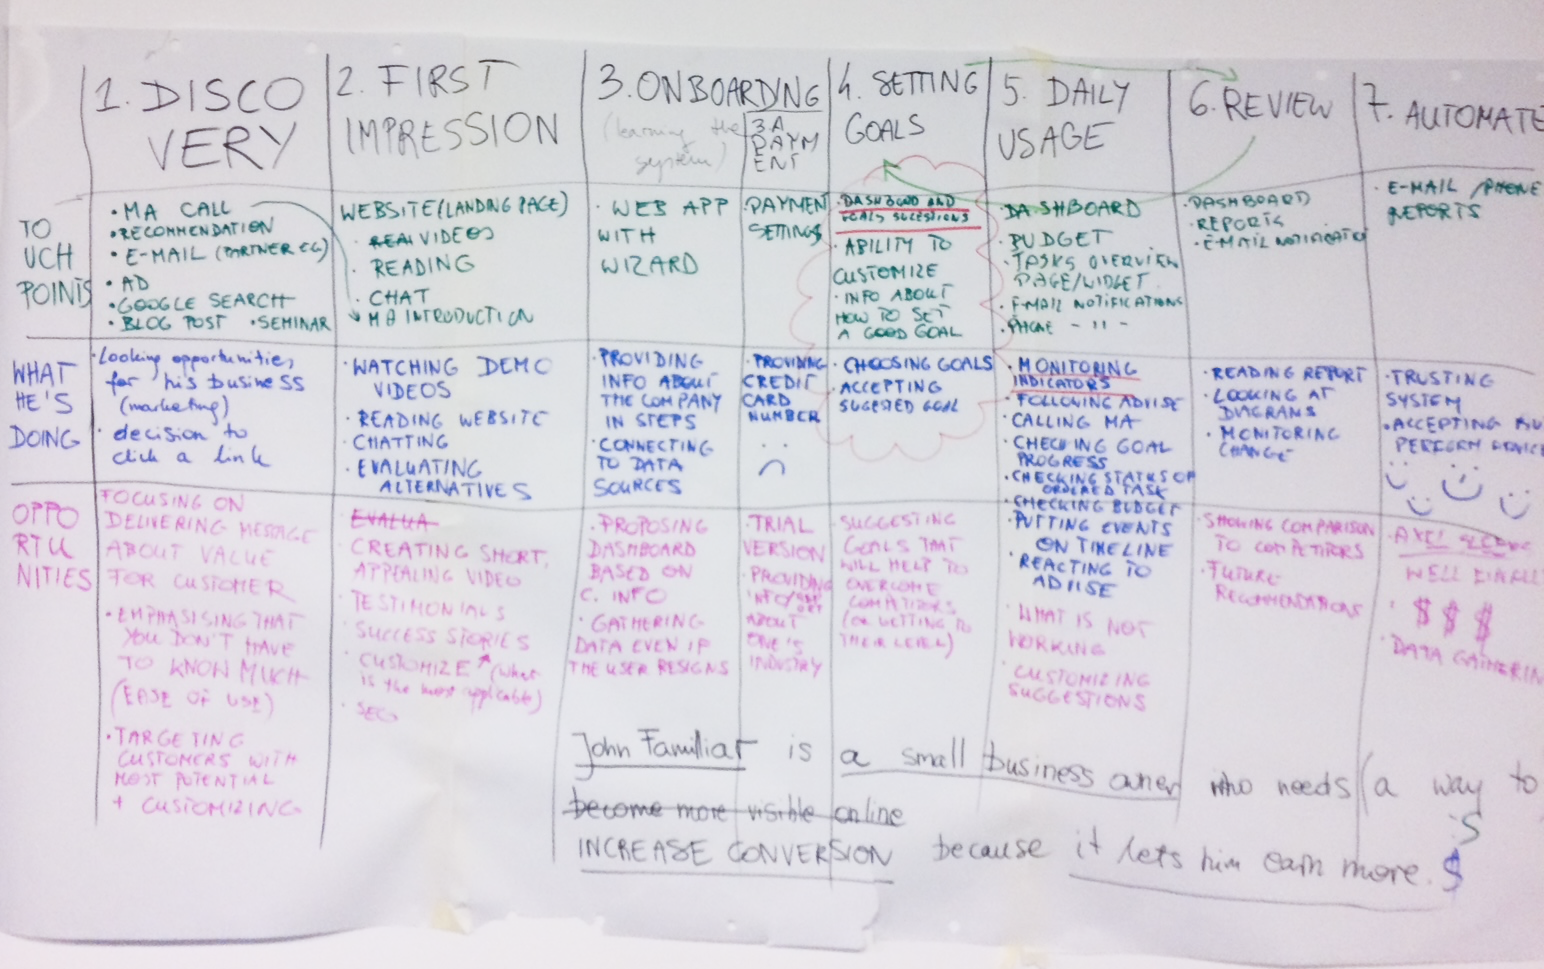 1. DISCO
VERY
2. FIRST
IMPRESSION
3. ONBOARDING
(learning the
system)
3.A
PAYM
ENT
4. SETTING
GOALS
5. DAILY
USAGE
6. REVIEW
7. AUTOMATE
TO
UCH
POINTS
• MA CALL
• RECOMMENDATION
• E-MAIL (PARTNER EG)
• AD
• GOOGLE SEARCH
• BLOG POST • SEMINAR
WEBSITE (LANDING PAGE)
• VIDEOS
• READING
• CHAT
MA INTRODUCTION
• WEB APP
WITH
WIZARD
PAYMENT
SETTINGS
• DASHBOARD AND
GOALS SUGESTIONS
• ABILITY TO
CUSTOMIZE
• INFO ABOUT
HOW TO SET
A GOOD GOAL
DASHBOARD
• BUDGET
• TASKS OVERVIEW
PAGE/WIDGET
• E-MAIL NOTIFICATIONS
• PHONE - 11 -
• DASHBOARD
• REPORTS
• E-MAIL NOTIFICATIO
• E-MAIL / PHONE
REPORTS
WHAT
HE'S
DOING
• Looking opportunities
for his business
(marketing)
• decision to
click a link
• WATCHING DEMO
VIDEOS
• READING WEBSITE
• CHATTING
• EVALUATING
ALTERNATIVES
• PROVIDING
INFO ABOUT
THE COMPANY
IN STEPS
• CONNECTING
TO DATA
SOURCES
• PROVIDING
CREDIT
CARD
NUMBER
• CHOOSING GOALS
• ACCEPTING
SUGESTED GOAL
• MONITORING
INDICATORS
• FOLLOWING ADVISE
• CALLING MA
• CHECKING GOAL
PROGRESS
• CHECKING STATUS OF
ORDERED TASK
• CHECKING BUDGET
• PUTTING EVENTS
ON TIMELINE
• REACTING TO
ADVISE
• READING REPORT
• LOOKING AT
DIAGRAMS
• MONITORING
CHANGE
• TRUSTING
SYSTEM
• ACCEPTING
PERFORM
OPPO
RTU
NITIES
FOCUSING ON
DELIVERING MESSAGE
ABOUT VALUE
FOR CUSTOMER
• EMPHASISING THAT
YOU DON'T HAVE
TO KNOW MUCH
(EASE OF USE)
• TARGETING
CUSTOMERS WITH
MOST POTENTIAL
+ CUSTOMIZING
EVALUA
CREATING SHORT,
APPEALING VIDEO
• TESTIMONIALS
• SUCCESS STORIES
• CUSTOMIZE (what
is the most applicable)
• SEO
• PROPOSING
DASHBOARD
BASED ON
C. INFO
• GATHERING
DATA EVEN IF
THE USER RESIGNS
• TRIAL
VERSION
• PROVIDING
INFO
ABOUT
ONE'S
INDUSTRY
• SUGGESTING
GOALS THAT
WILL HELP TO
OVERCOME
COMPATITORS
(OR GETTING TO
THEIR LEVEL)
• WHAT IS NOT
WORKING
• CUSTOMIZING
SUGGESTIONS
• SHOWING COMPARISON
TO COMPATITORS
• FUTURE
RECOMMENDATIONS
WELL
• $ $ $
• DATA GATHERIN
John Familiar is a small business owner who needs (a way to
become more visible online
INCREASE CONVERSION because it lets him earn more. $